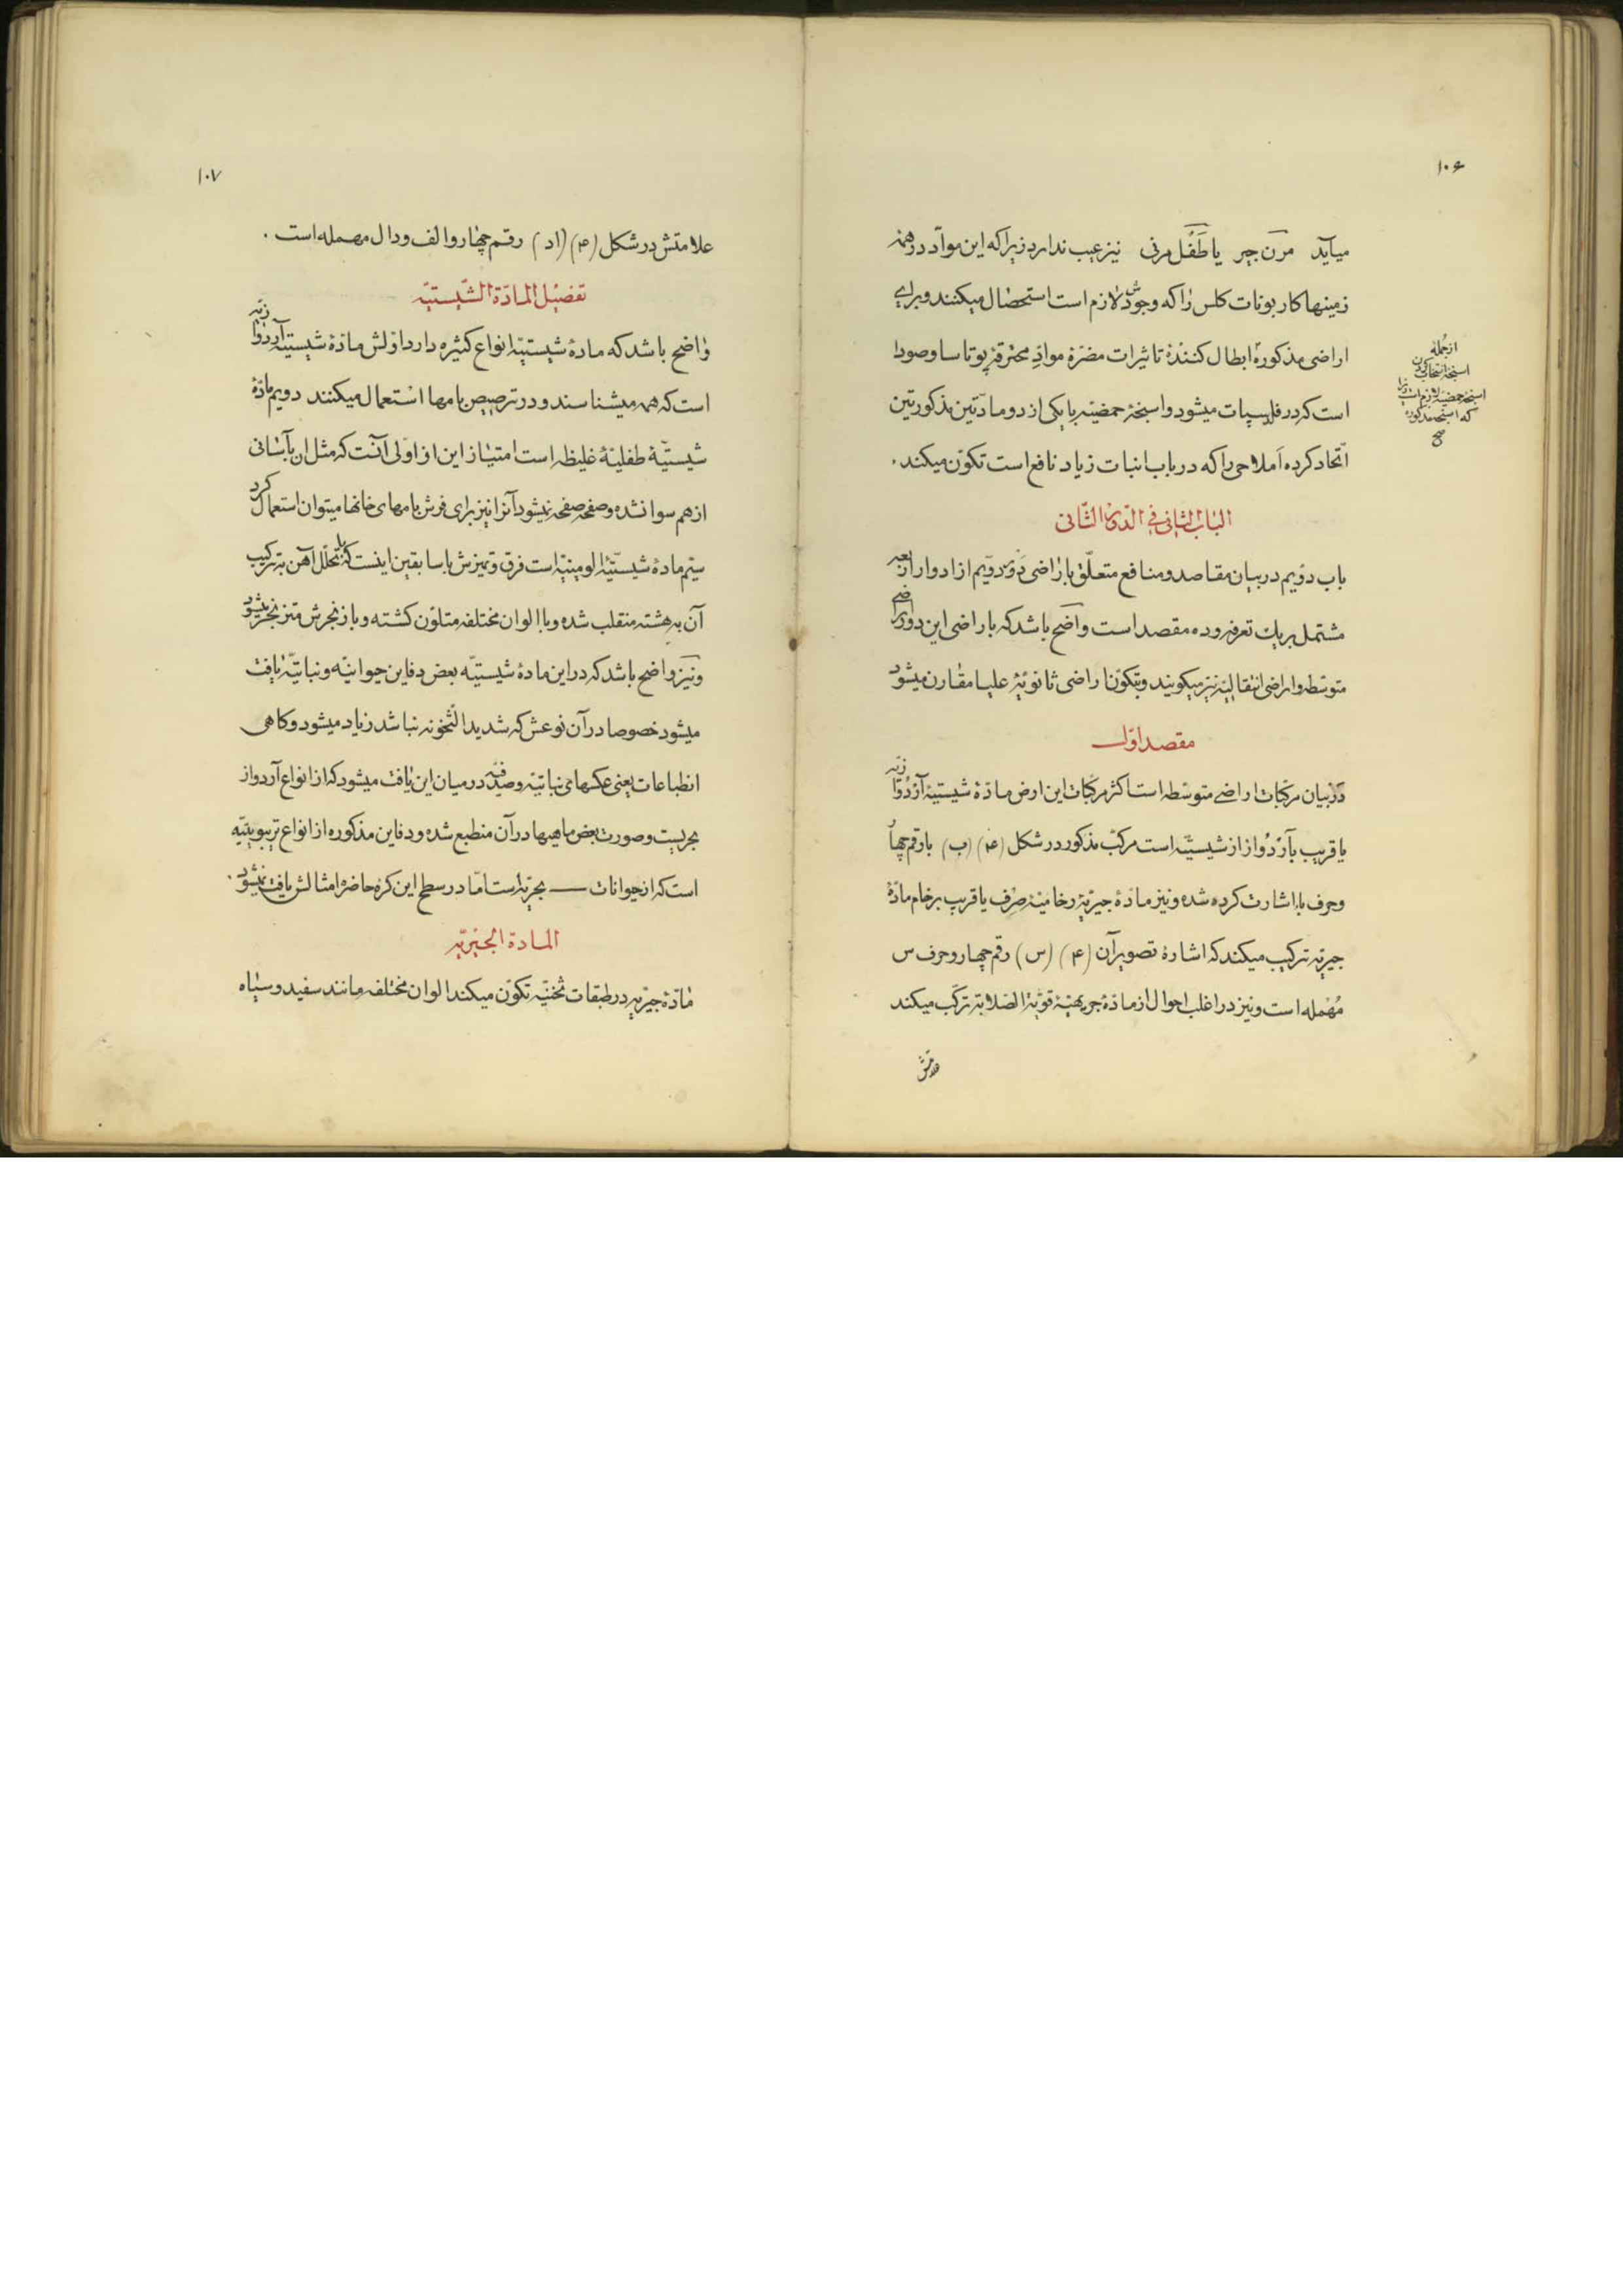 ۱۰۶
میآید مرن جیر یا طفل مرنی نیز عیب ندارد زیرا که این مواد در همه
زمینها کاربونات کلس را که وجودش لازم است استحصال میکنند و برای
اراضی مذکوره ابطال کنندهٔ تاثیرات مضرهٔ موادّ محترقهٔ پوتاسا وصودا
است که در فلدسپات میشود واسبخهٔ حمضیه با یکی از دو مادّتین مذکورتین
اتّحاد کرده املاحی را که در باب انبات زیاد نافع است تکوّن میکند .
از جمله
که اسبخهٔ مذکوره
صح
الباب الثانی فی الدّور الثّانی
باب دویم در بیان مقاصد و منافع متعلّق باراضی دور دویم از ادوار اربعه
مشتمل بر یك تعرفه و ده مقصد است واضح باشد که باراضی این دور اراضی
متوسّطه و اراضی انتقالیّه نیز میکویند و بتکوّن اراضی ثانویّهٔ علیا مقارن میشود
مقصد اوّل
در بیان مرکّبات اراضی متوسّطه است اکثر مرکّبات این ارض مادّهٔ شیستیّهٔ آردوازیّه
یا قریب بآردواز از شیستیّه است مرکّب مذکور در شکل (۴) (ب) با رقم چهار
و حرف با اشارت کرده شده و نیز مادّهٔ جیریّهٔ رخامیّهٔ صرف یا قریب برخام مادّهٔ
جیریّه ترکیب میکند که اشارهٔ تصویر آن (۴) (س) رقم چهار و حرف س
مهمله است و نیز در اغلب احوال از مادّهٔ جریهیّهٔ قویّة الصّلابة ترکّب میکند
علامتش
۱۰۷
علامتش در شکل (۴) (اد) رقم چهار والف و دال مهمله است .
تفضیل المادّة الشّیستیّه
واضح باشد که مادهٔ شیستیّه انواع کثیره دارد اوّلش مادّهٔ شیستیّه آردوازیّه
است که همه میشناسند و در ترصیص بامها استعمال میکنند دویم مادّهٔ
شیستیّهٔ طفلیّهٔ غلیظه است امتیاز این از اولی آنست که مثل ان بآسانی
از هم سوا نشده و صفحه صفحه نمیشود آنرا نیز برای فرش بامهای خانها میتوان استعمال کرد
سیّم مادهٔ شیستیّهٔ الومینیّه است فرق و تمیزش با سابقین اینست که با تحلّل آهن به ترکیب
آن بهشته منقلب شده و با الوان مختلفه متلوّن کشته و باز نجرش متزنجر میشود
و نیز واضح باشد که در این مادهٔ شیستیّه بعض دفاین حیوانیّه و نباتیّه یافت
میشود خصوصا در آن نوعش که شدید الثّخونه نباشد زیاد میشود و کاهی
انطباعات یعنی عکسهای نباتیّه و صدفیّه در میان این یافت میشود که از انواع آردواز
بحریست و صورت بعض ماهیها در آن منطبع شده و دفاین مذکوره از انواع تریبولیتیّه
است که از حیوانات بحریّه است امّا در سطح این کرهٔ حاضره امثالش یافت نمیشود .
المادة الجیریّه
مادّهٔ جیریّه در طبقات ثخنیّه تکوّن میکند الوان مختلفه مانند سفید و سیاه